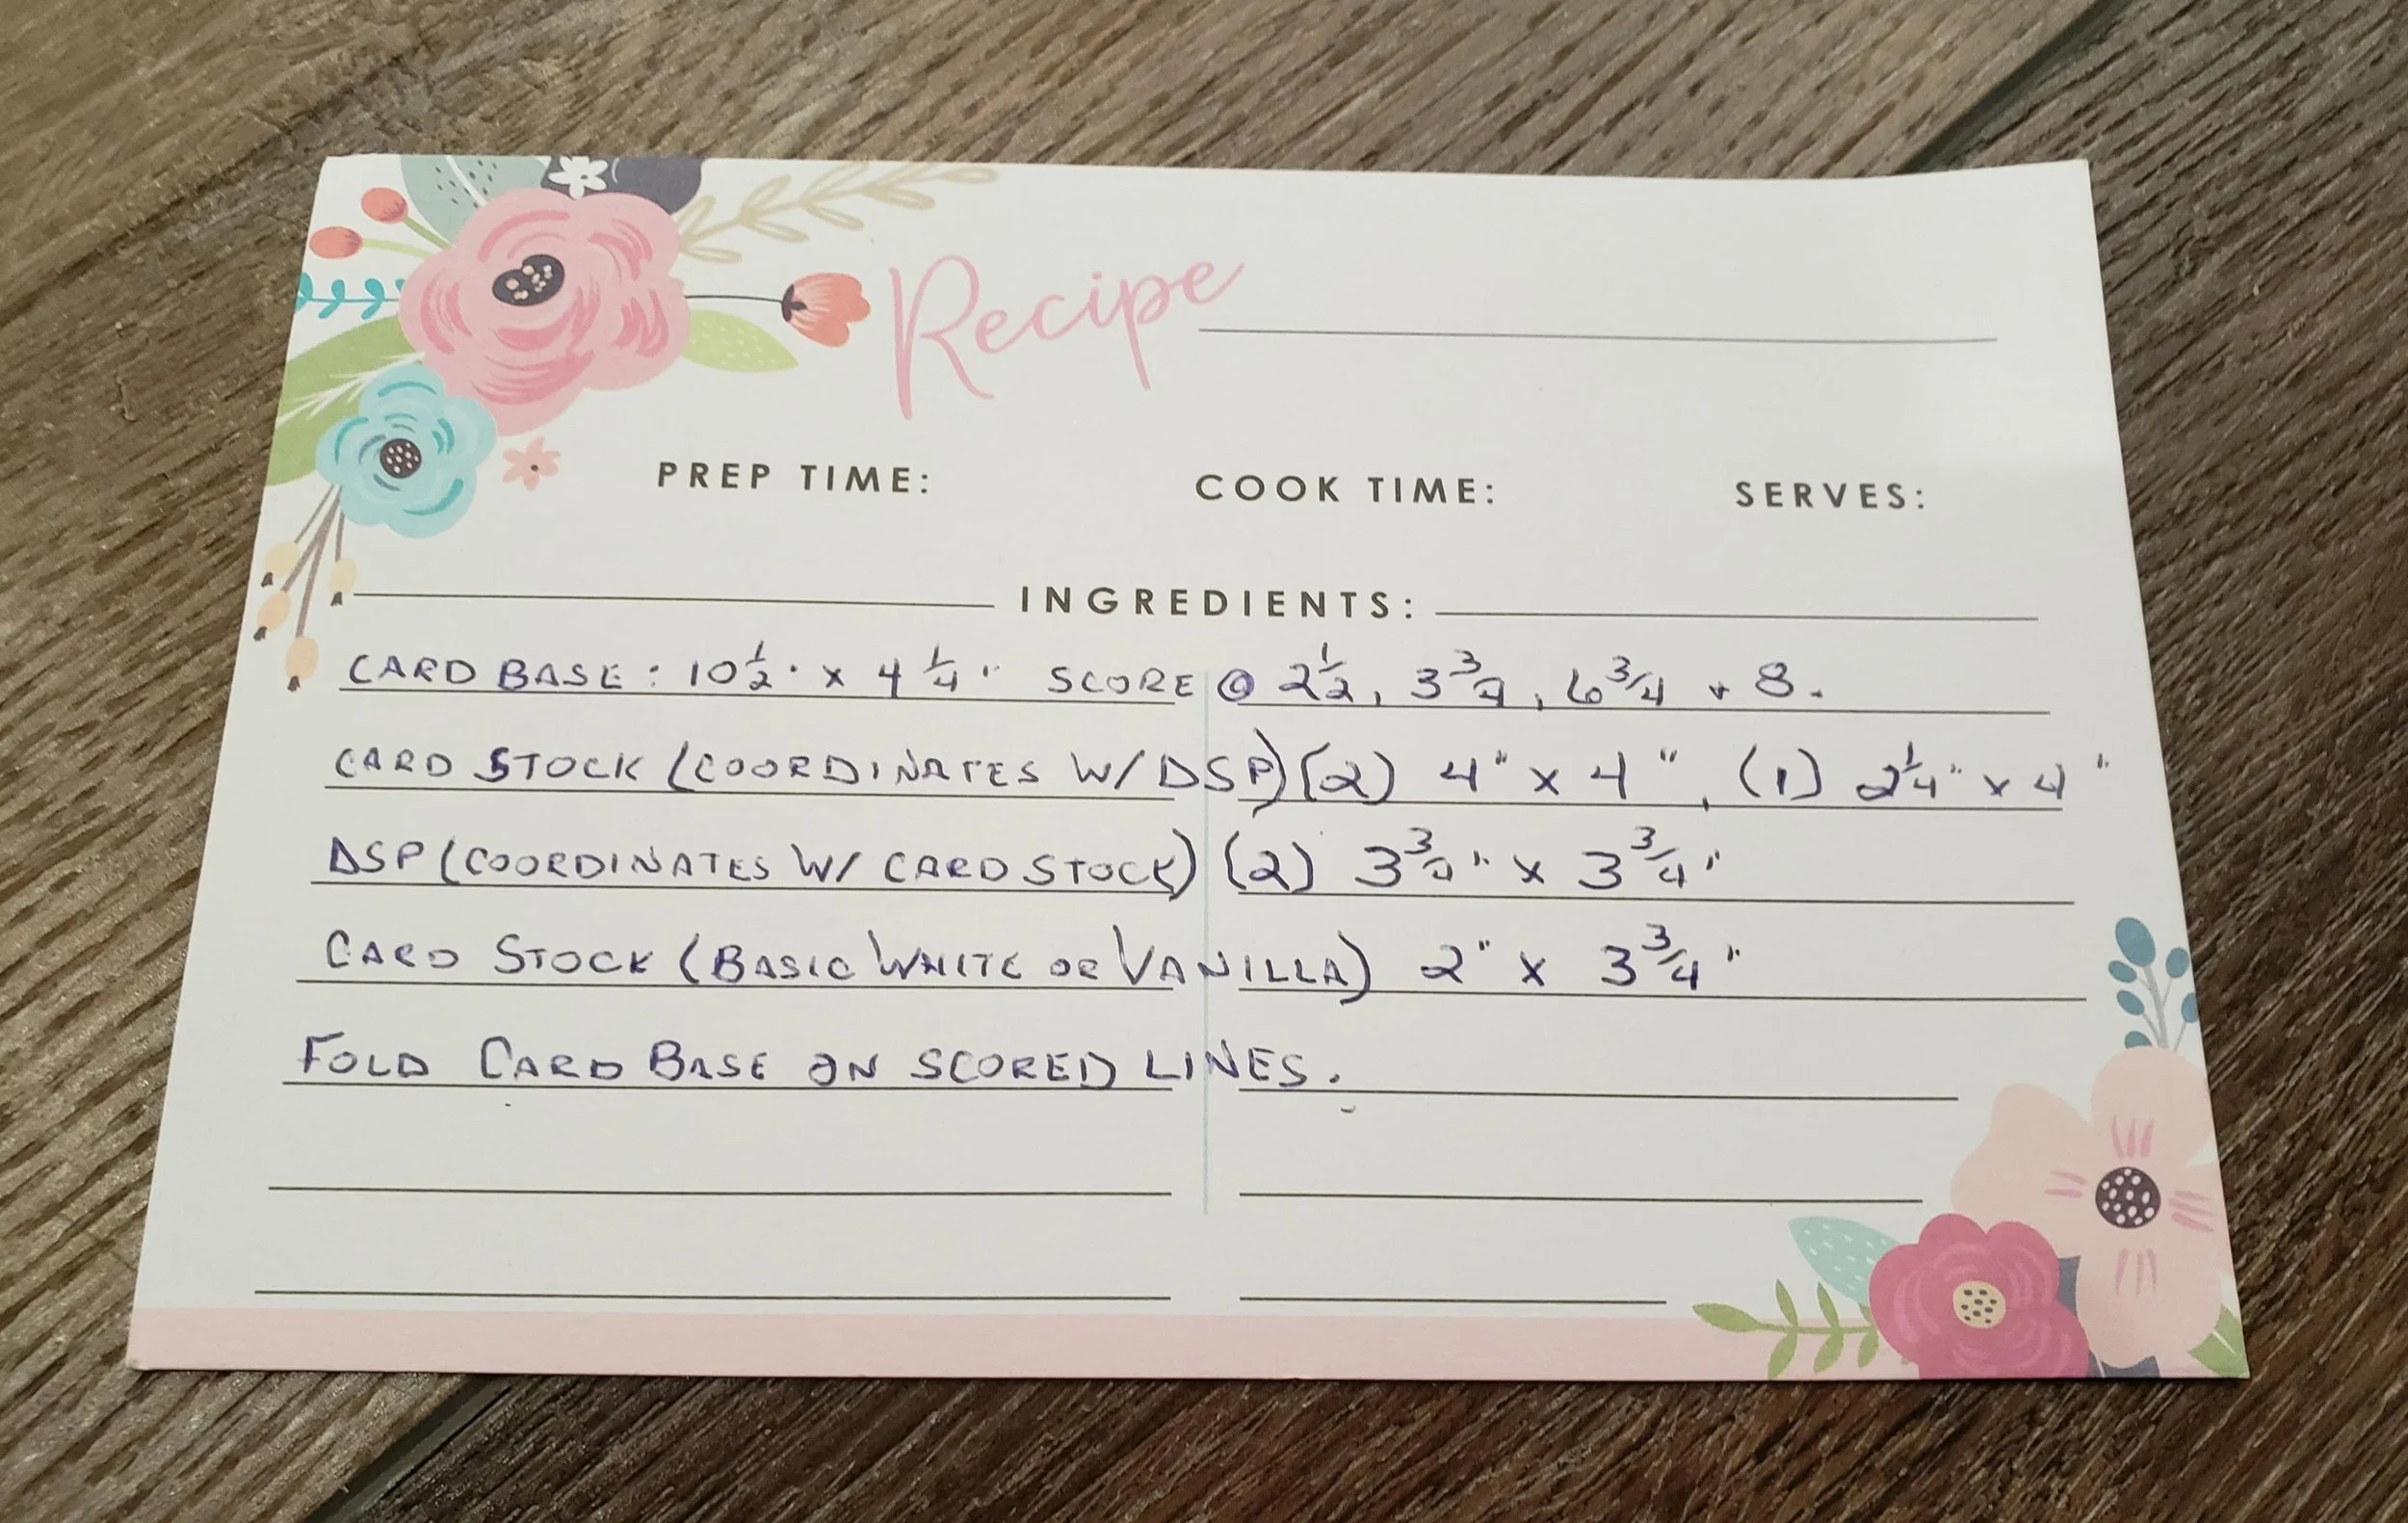 Recipe
PREP TIME: COOK TIME: SERVES:
INGREDIENTS:
CARD BASE: 10 1/2" x 4 1/4" SCORE @ 2 1/2, 3 3/4, 6 3/4 + 8.
CARD STOCK (COORDINATES W/ DSP) (2) 4" x 4", (1) 2 1/4" x 4"
DSP (COORDINATES W/ CARD STOCK) (2) 3 3/4" x 3 3/4"
CARD STOCK (BASIC WHITE OR VANILLA) 2" x 3 3/4"
FOLD CARD BASE ON SCORED LINES.